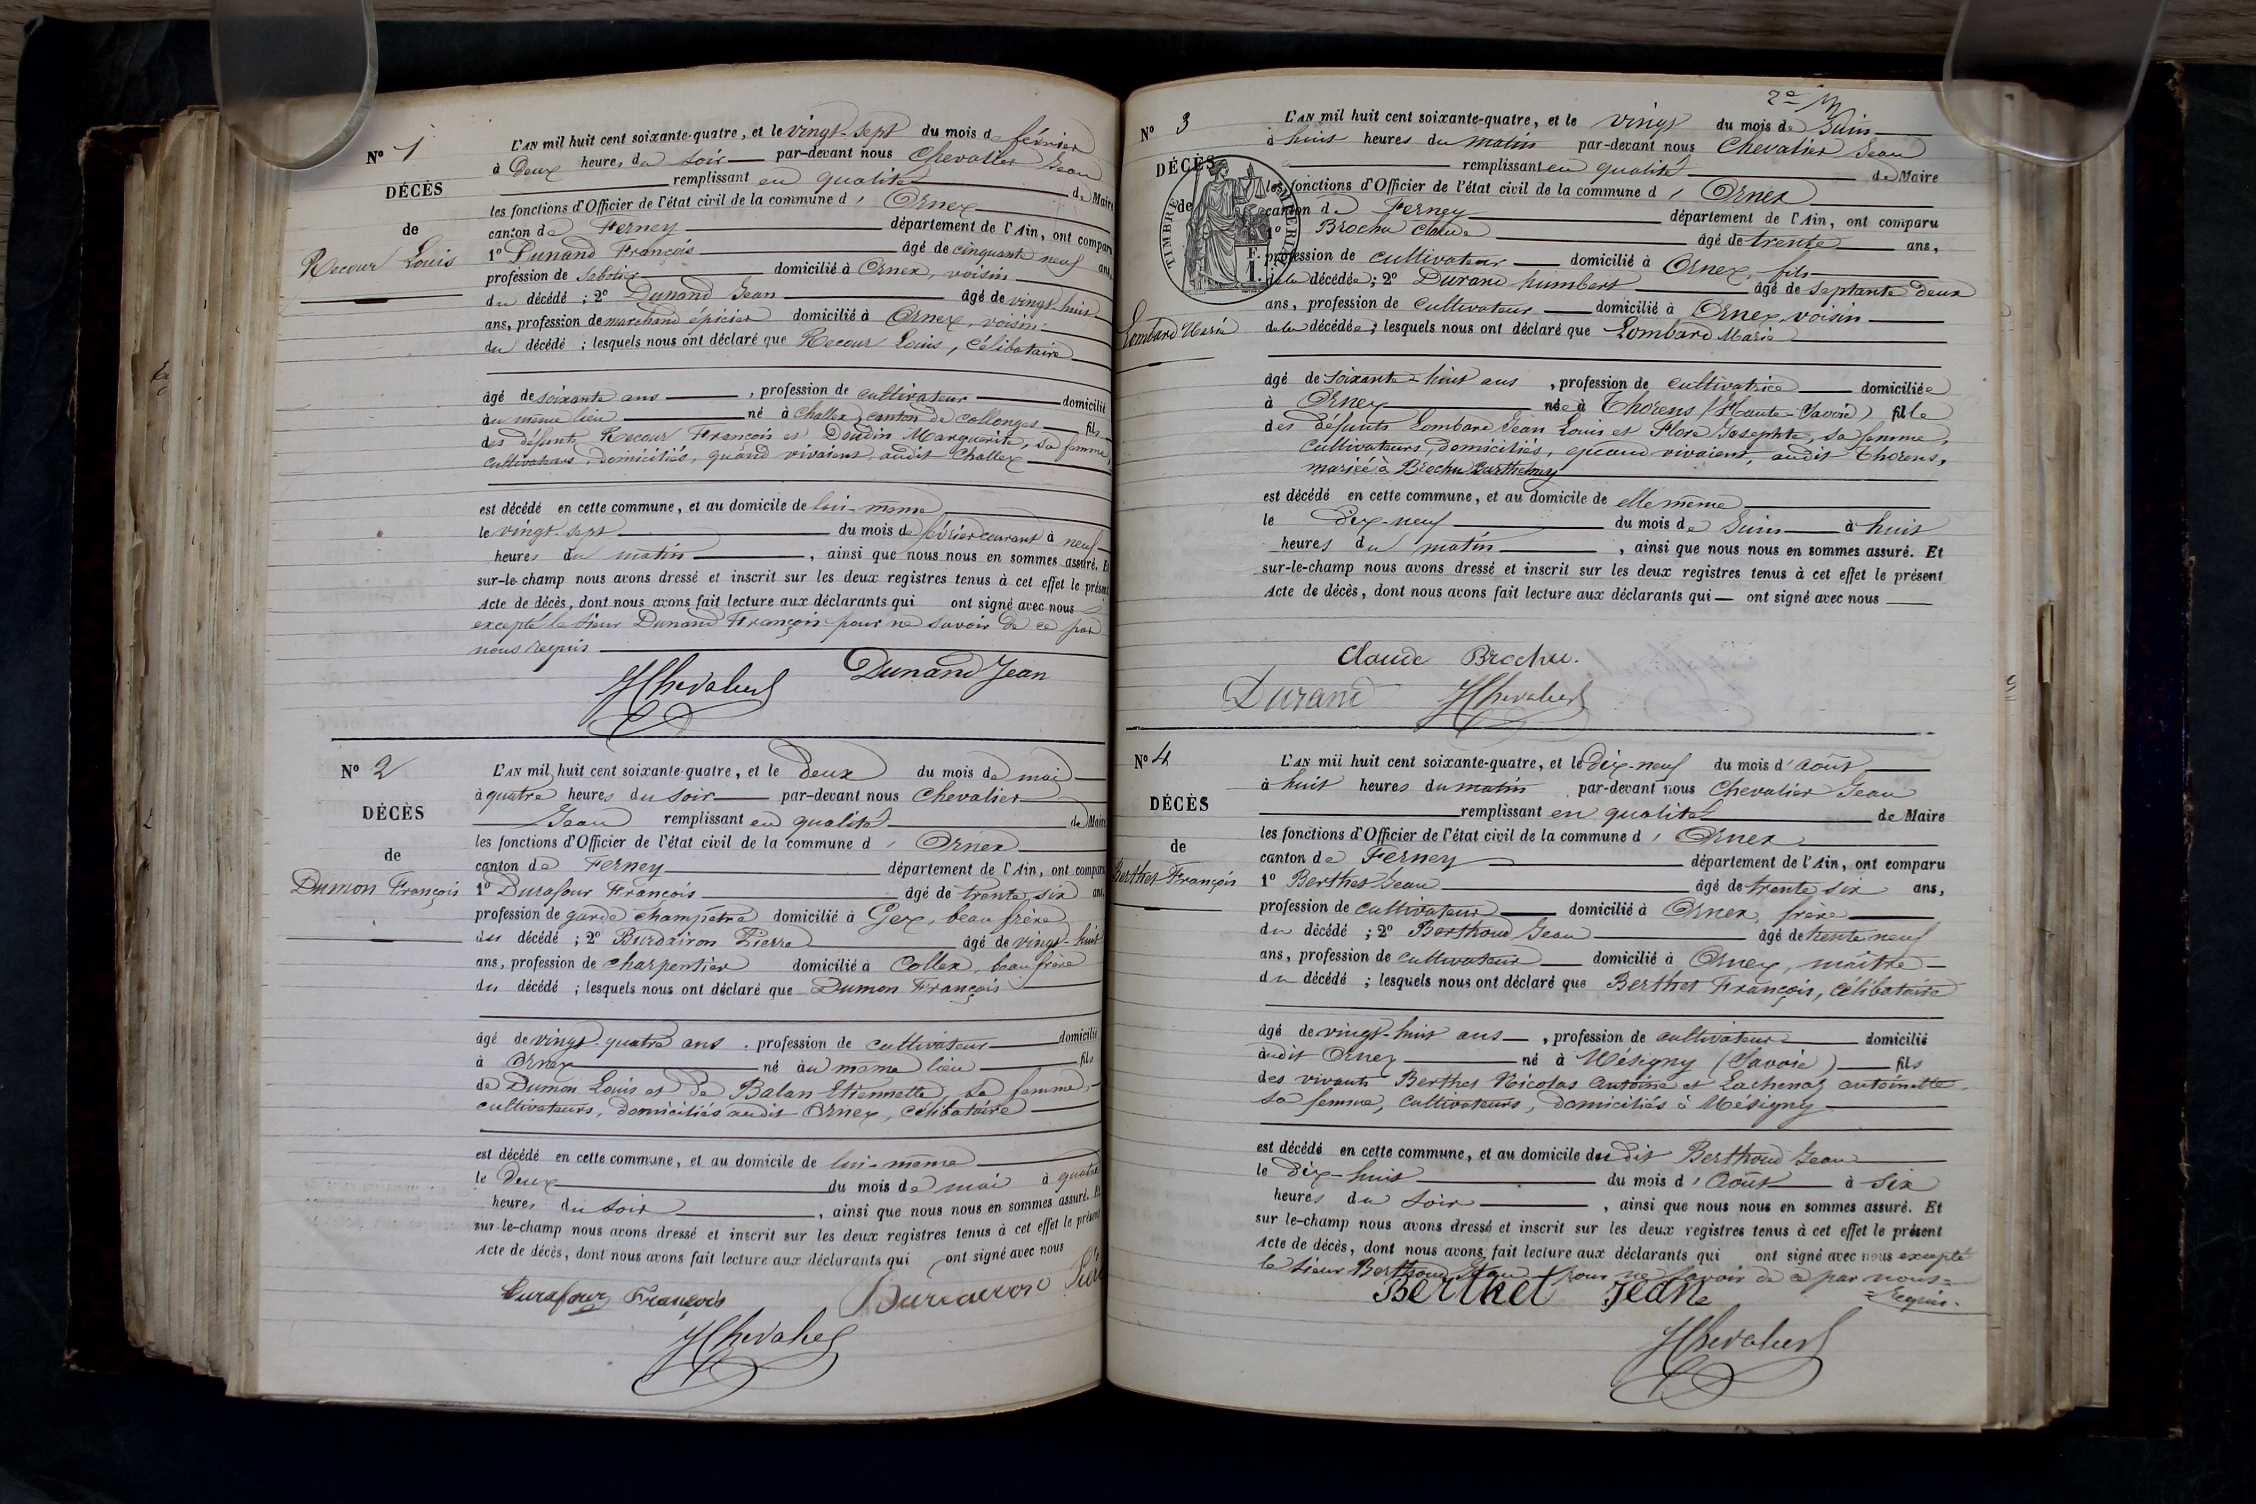 N° 1
DÉCÈS
de
Recour Louis
L'AN mil huit cent soixante-quatre, et le vingt-sept du mois de février
à Deux heures du soir par-devant nous Chevallier Jean
remplissant en qualité de Maire
les fonctions d'Officier de l'état civil de la commune d' Ornex
canton de Ferney département de l'Ain, ont comparu
1° Dunand François âgé de cinquante neuf ans,
profession de sabotier domicilié à Ornex, voisin
du décédé ; 2° Dunand Jean âgé de vingt-huit
ans, profession de marchand épicier domicilié à Ornex, voisin
du décédé ; lesquels nous ont déclaré que Recour Louis, célibataire
âgé de soixante ans, profession de cultivateur domicilié
au même lieu né à Challex, canton de Collonges fils
des défunts Recour François et Doudin Marguerite, sa femme,
cultivateurs, domiciliés, quand vivaient, audit Challex
est décédé en cette commune, et au domicile de lui-même
le vingt-sept du mois de février courant à neuf
heures du matin, ainsi que nous nous en sommes assuré. Et
sur-le-champ nous avons dressé et inscrit sur les deux registres tenus à cet effet le présent
Acte de décès, dont nous avons fait lecture aux déclarants qui ont signé avec nous
excepté le sieur Dunand François pour ne savoir de ce par
nous requis
JChevalier Dunand Jean
N° 2
DÉCÈS
de
Dumon François
L'AN mil huit cent soixante-quatre, et le deux du mois de mai
à quatre heures du soir par-devant nous Chevalier
Jean remplissant en qualité de Maire
les fonctions d'Officier de l'état civil de la commune d' Ornex
canton de Ferney département de l'Ain, ont comparu
1° Durafour François âgé de trente six ans,
profession de garde champêtre domicilié à Gex, beau frère
du décédé ; 2° Burdairon Pierre âgé de vingt-huit
ans, profession de charpentier domicilié à Collex, beau frère
du décédé ; lesquels nous ont déclaré que Dumon François
âgé de vingt-quatre ans, profession de cultivateur domicilié
à Ornex né au même lieu fils
de Dumon Louis et de Balan Etiennette, sa femme,
cultivateurs, domiciliés audit Ornex, célibataire
est décédé en cette commune, et au domicile de lui-même
le deux du mois de mai à quatre
heures du soir, ainsi que nous nous en sommes assuré. Et
sur-le-champ nous avons dressé et inscrit sur les deux registres tenus à cet effet le présent
Acte de décès, dont nous avons fait lecture aux déclarants qui ont signé avec nous
Durafour François Burdairon
JChevalier
N° 3
DÉCÈS
de
TIMBRE IMPÉRIAL
Lombard Marie
L'AN mil huit cent soixante-quatre, et le vingt du mois de Juin
à huit heures du matin par-devant nous Chevalier Jean
remplissant en qualité de Maire
les fonctions d'Officier de l'état civil de la commune d' Ornex
canton de Ferney département de l'Ain, ont comparu
1° Brochu Claude âgé de trente ans,
profession de cultivateur domicilié à Ornex, fils
de la décédée ; 2° Durand humbert âgé de septante deux
ans, profession de cultivateur domicilié à Ornex, voisin
de la décédée ; lesquels nous ont déclaré que Lombard Marie
âgé de soixante-huit ans, profession de cultivatrice domiciliée
à Ornex née à Thorens (Haute-Savoie) fille
des défunts Lombard Jean Louis et Flore Josephte, sa femme,
cultivateurs, domiciliés, quand vivaient, audit Thorens,
mariée à Brochu Barthelemy
est décédé en cette commune, et au domicile de elle même
le dix-neuf du mois de Juin à huit
heures du matin, ainsi que nous nous en sommes assuré. Et
sur-le-champ nous avons dressé et inscrit sur les deux registres tenus à cet effet le présent
Acte de décès, dont nous avons fait lecture aux déclarants qui ont signé avec nous
Claude Brochu.
Durand JChevalier
N° 4
DÉCÈS
de
Berthet François
L'AN mil huit cent soixante-quatre, et le dix-neuf du mois d'Août
à huit heures du matin par-devant nous Chevalier Jean
remplissant en qualité de Maire
les fonctions d'Officier de l'état civil de la commune d' Ornex
canton de Ferney département de l'Ain, ont comparu
1° Berthet Jean âgé de trente six ans,
profession de cultivateur domicilié à Ornex, frère
du décédé ; 2° Berthoud Jean âgé de trente neuf
ans, profession de cultivateur domicilié à Ornex, maître
du décédé ; lesquels nous ont déclaré que Berthet François, célibataire
âgé de vingt-huit ans, profession de cultivateur domicilié
audit Ornex né à Mésigny (Savoie) fils
des vivants Berthet Nicolas Antoine et Lachenaz antoinette
sa femme, cultivateurs, domiciliés à Mésigny
est décédé en cette commune, et au domicile du dit Berthoud Jean
le dix-huit du mois d'Août à six
heures du soir, ainsi que nous nous en sommes assuré. Et
sur-le-champ nous avons dressé et inscrit sur les deux registres tenus à cet effet le présent
Acte de décès, dont nous avons fait lecture aux déclarants qui ont signé avec nous excepté
le sieur Berthoud Jean pour ne savoir de ce par nous
requis.
Berthet Jean
JChevalier